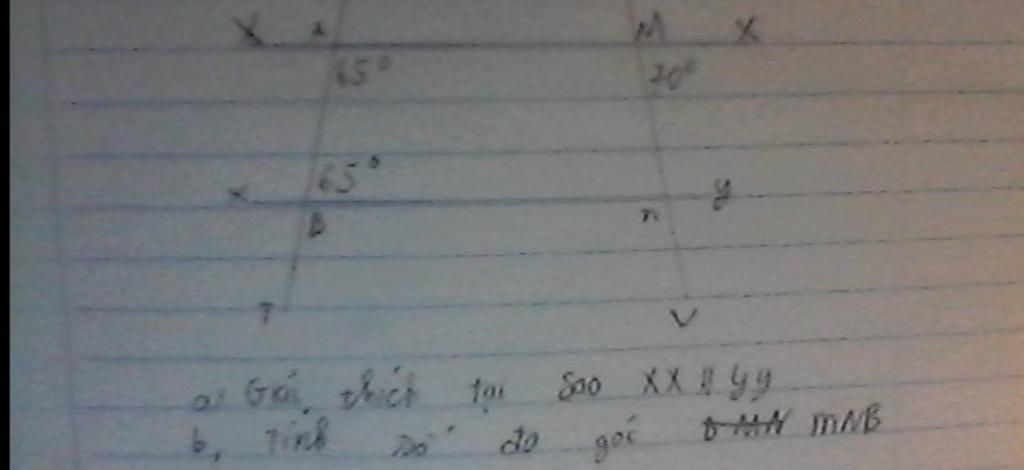 X A M X
65° 70°
65°
x y
B n
T V
a, Giải thích tại sao XX // yy
b, Tính số đo góc BMN mNB